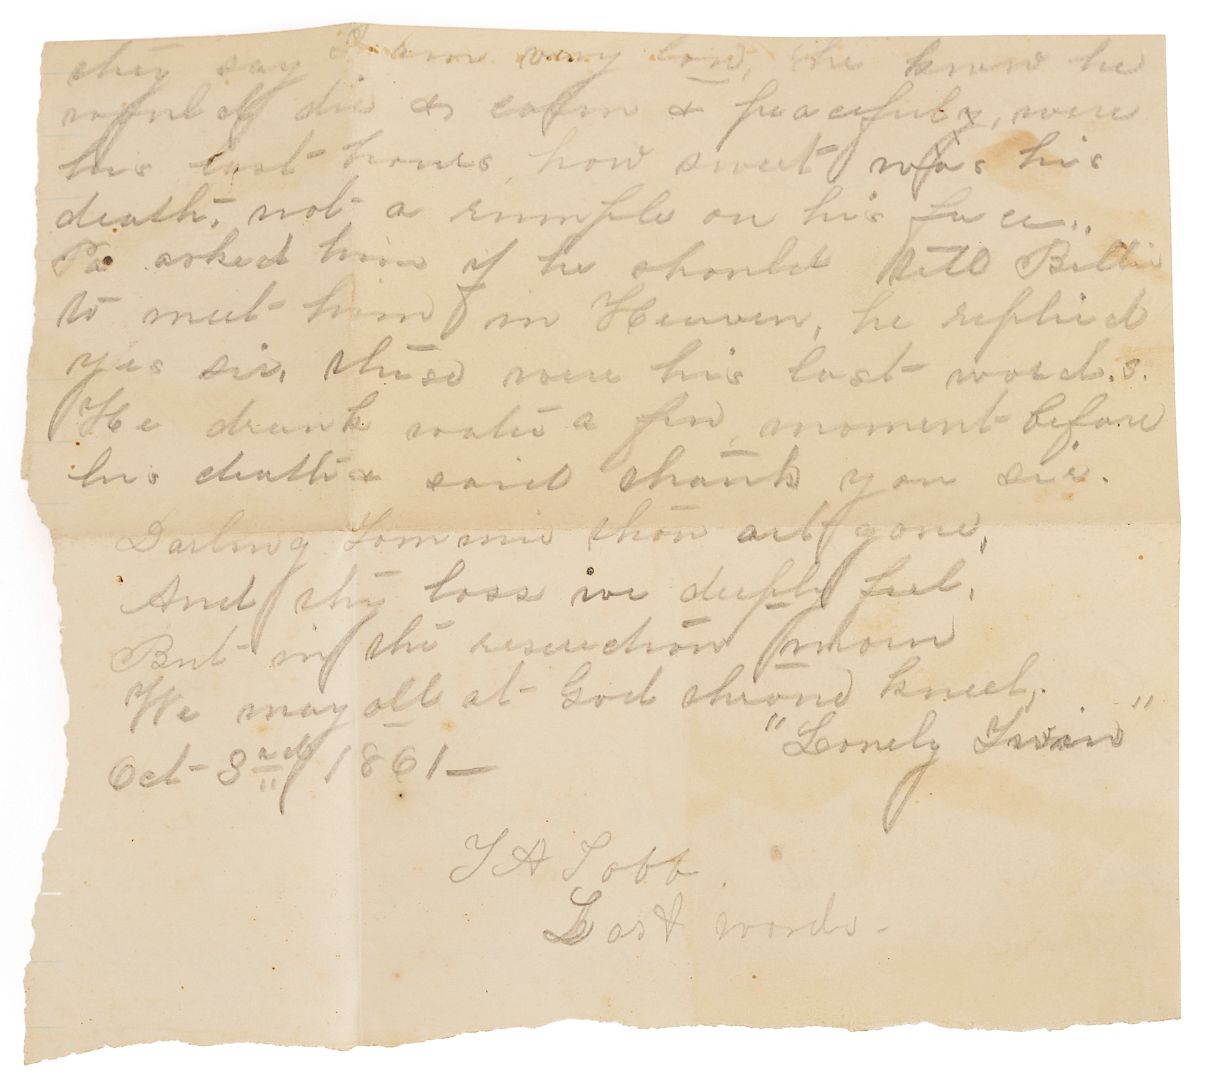 they say I am very low, he knew he
would die & calm & peacefuly, were
his last hours, how sweet was his
death, not a rumple on his face..
Pa asked him if he should tell Billie
to meet him in Heaven, he replied
yes sir, these were his last words.
He drank water a few moment before
his death & said thank you sir.
Darling Tommie thou art gone,
And thy loss we deeply feel,
But in the reserection morn
We may all at God throne kneel,
"Lonely Twin"
Oct 3rd 1861—
T A Tobb
Last words.